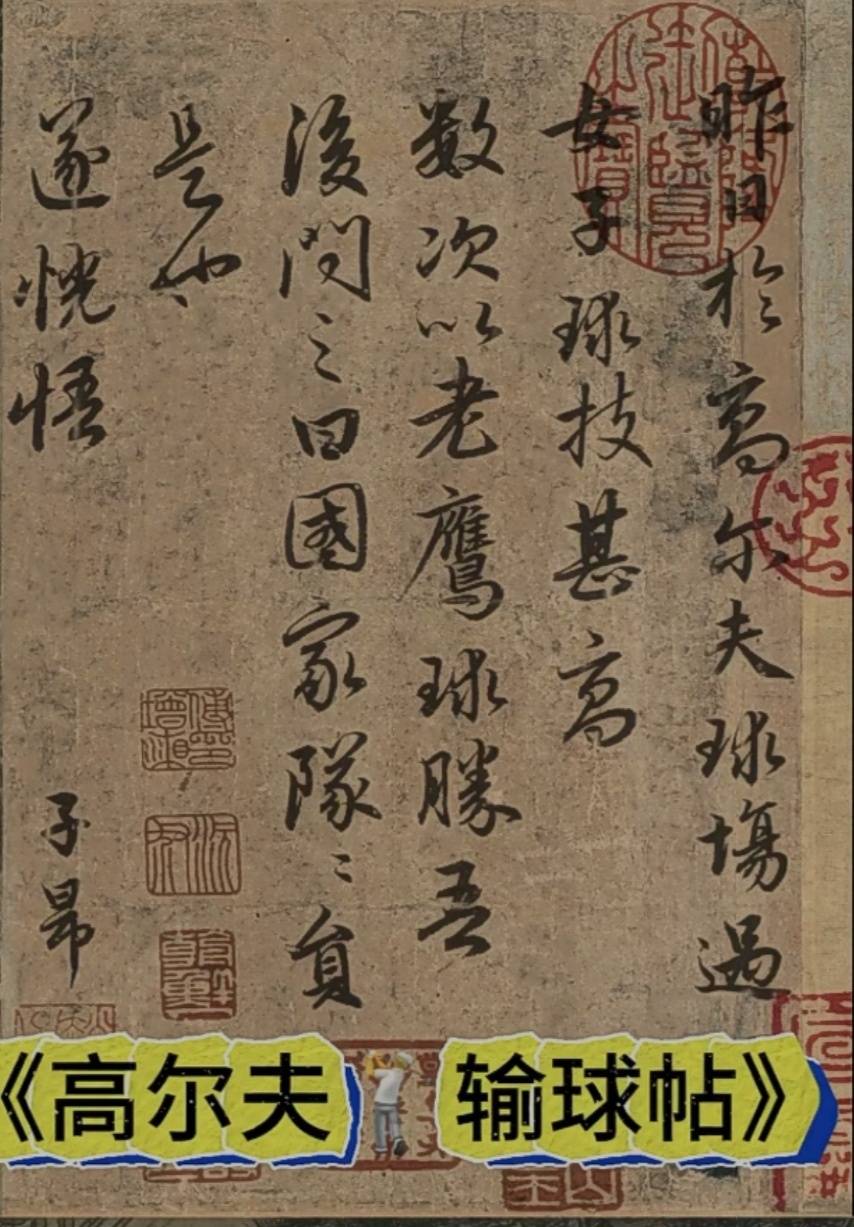 昨日於高尔夫球場過
女子球技甚高
数次以老鷹球勝吾
後問之曰國家隊〻員
是也
遂恍悟
子昂
《高尔夫输球帖》